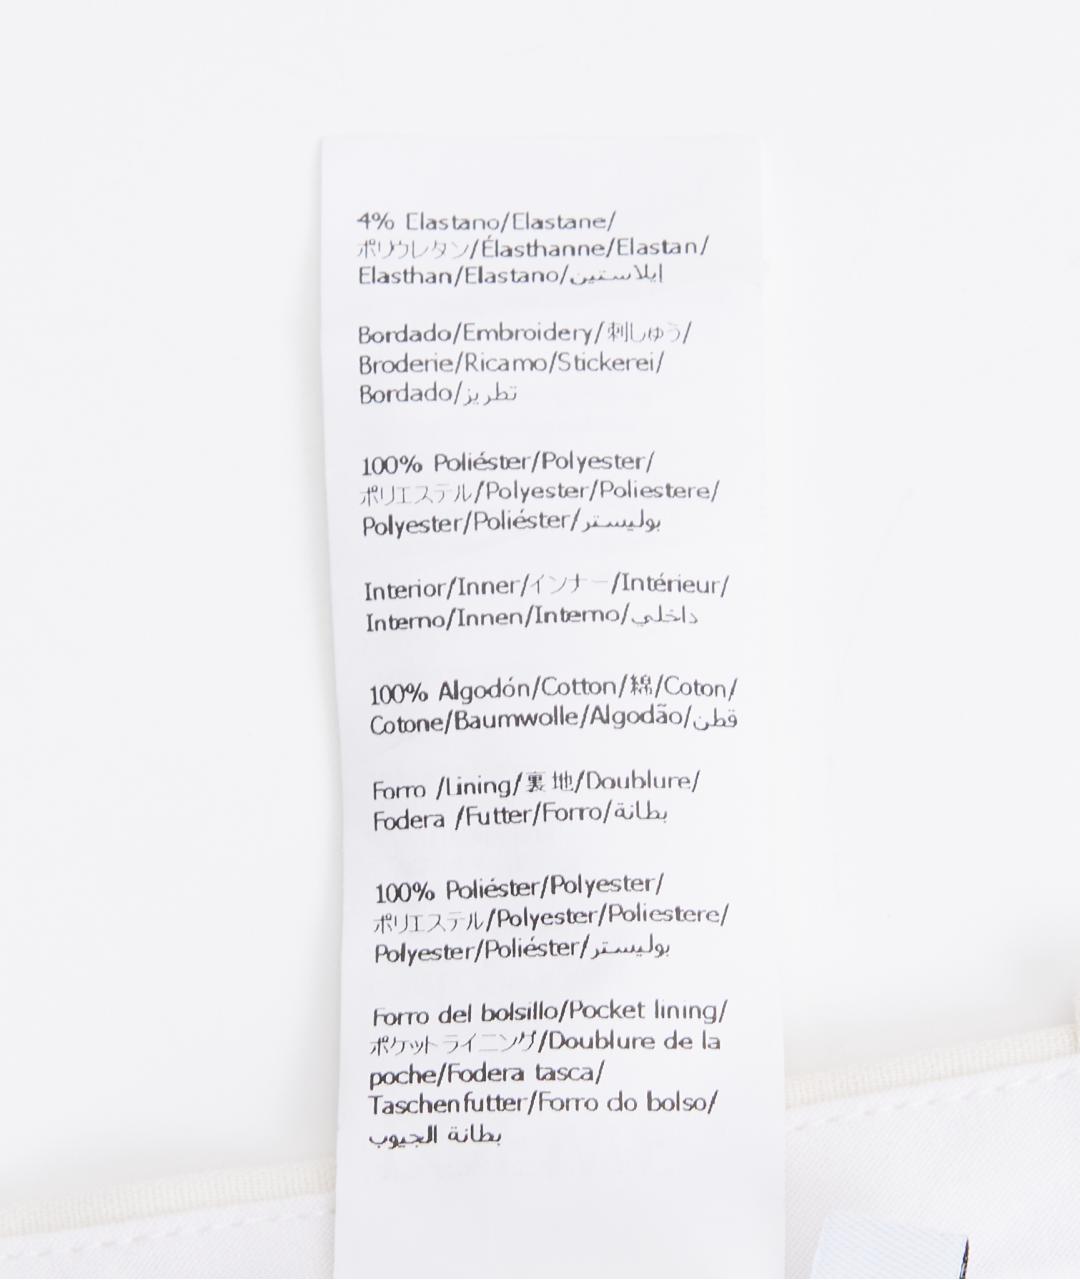 4% Elastano/Elastane/
ポリウレタン/Élasthanne/Elastan/
Elasthan/Elastano/إيلاستين
Bordado/Embroidery/刺しゅう/
Broderie/Ricamo/Stickerei/
Bordado/تطريز
100% Poliéster/Polyester/
ポリエステル/Polyester/Poliestere/
Polyester/Poliéster/بوليستر
Interior/Inner/インナー/Intérieur/
Interno/Innen/Interno/داخلي
100% Algodón/Cotton/綿/Coton/
Cotone/Baumwolle/Algodão/قطن
Forro /Lining/裏地/Doublure/
Fodera /Futter/Forro/بطانة
100% Poliéster/Polyester/
ポリエステル/Polyester/Poliestere/
Polyester/Poliéster/بوليستر
Forro del bolsillo/Pocket lining/
ポケットライニング/Doublure de la
poche/Fodera tasca/
Taschenfutter/Forro do bolso/
بطانة الجيوب